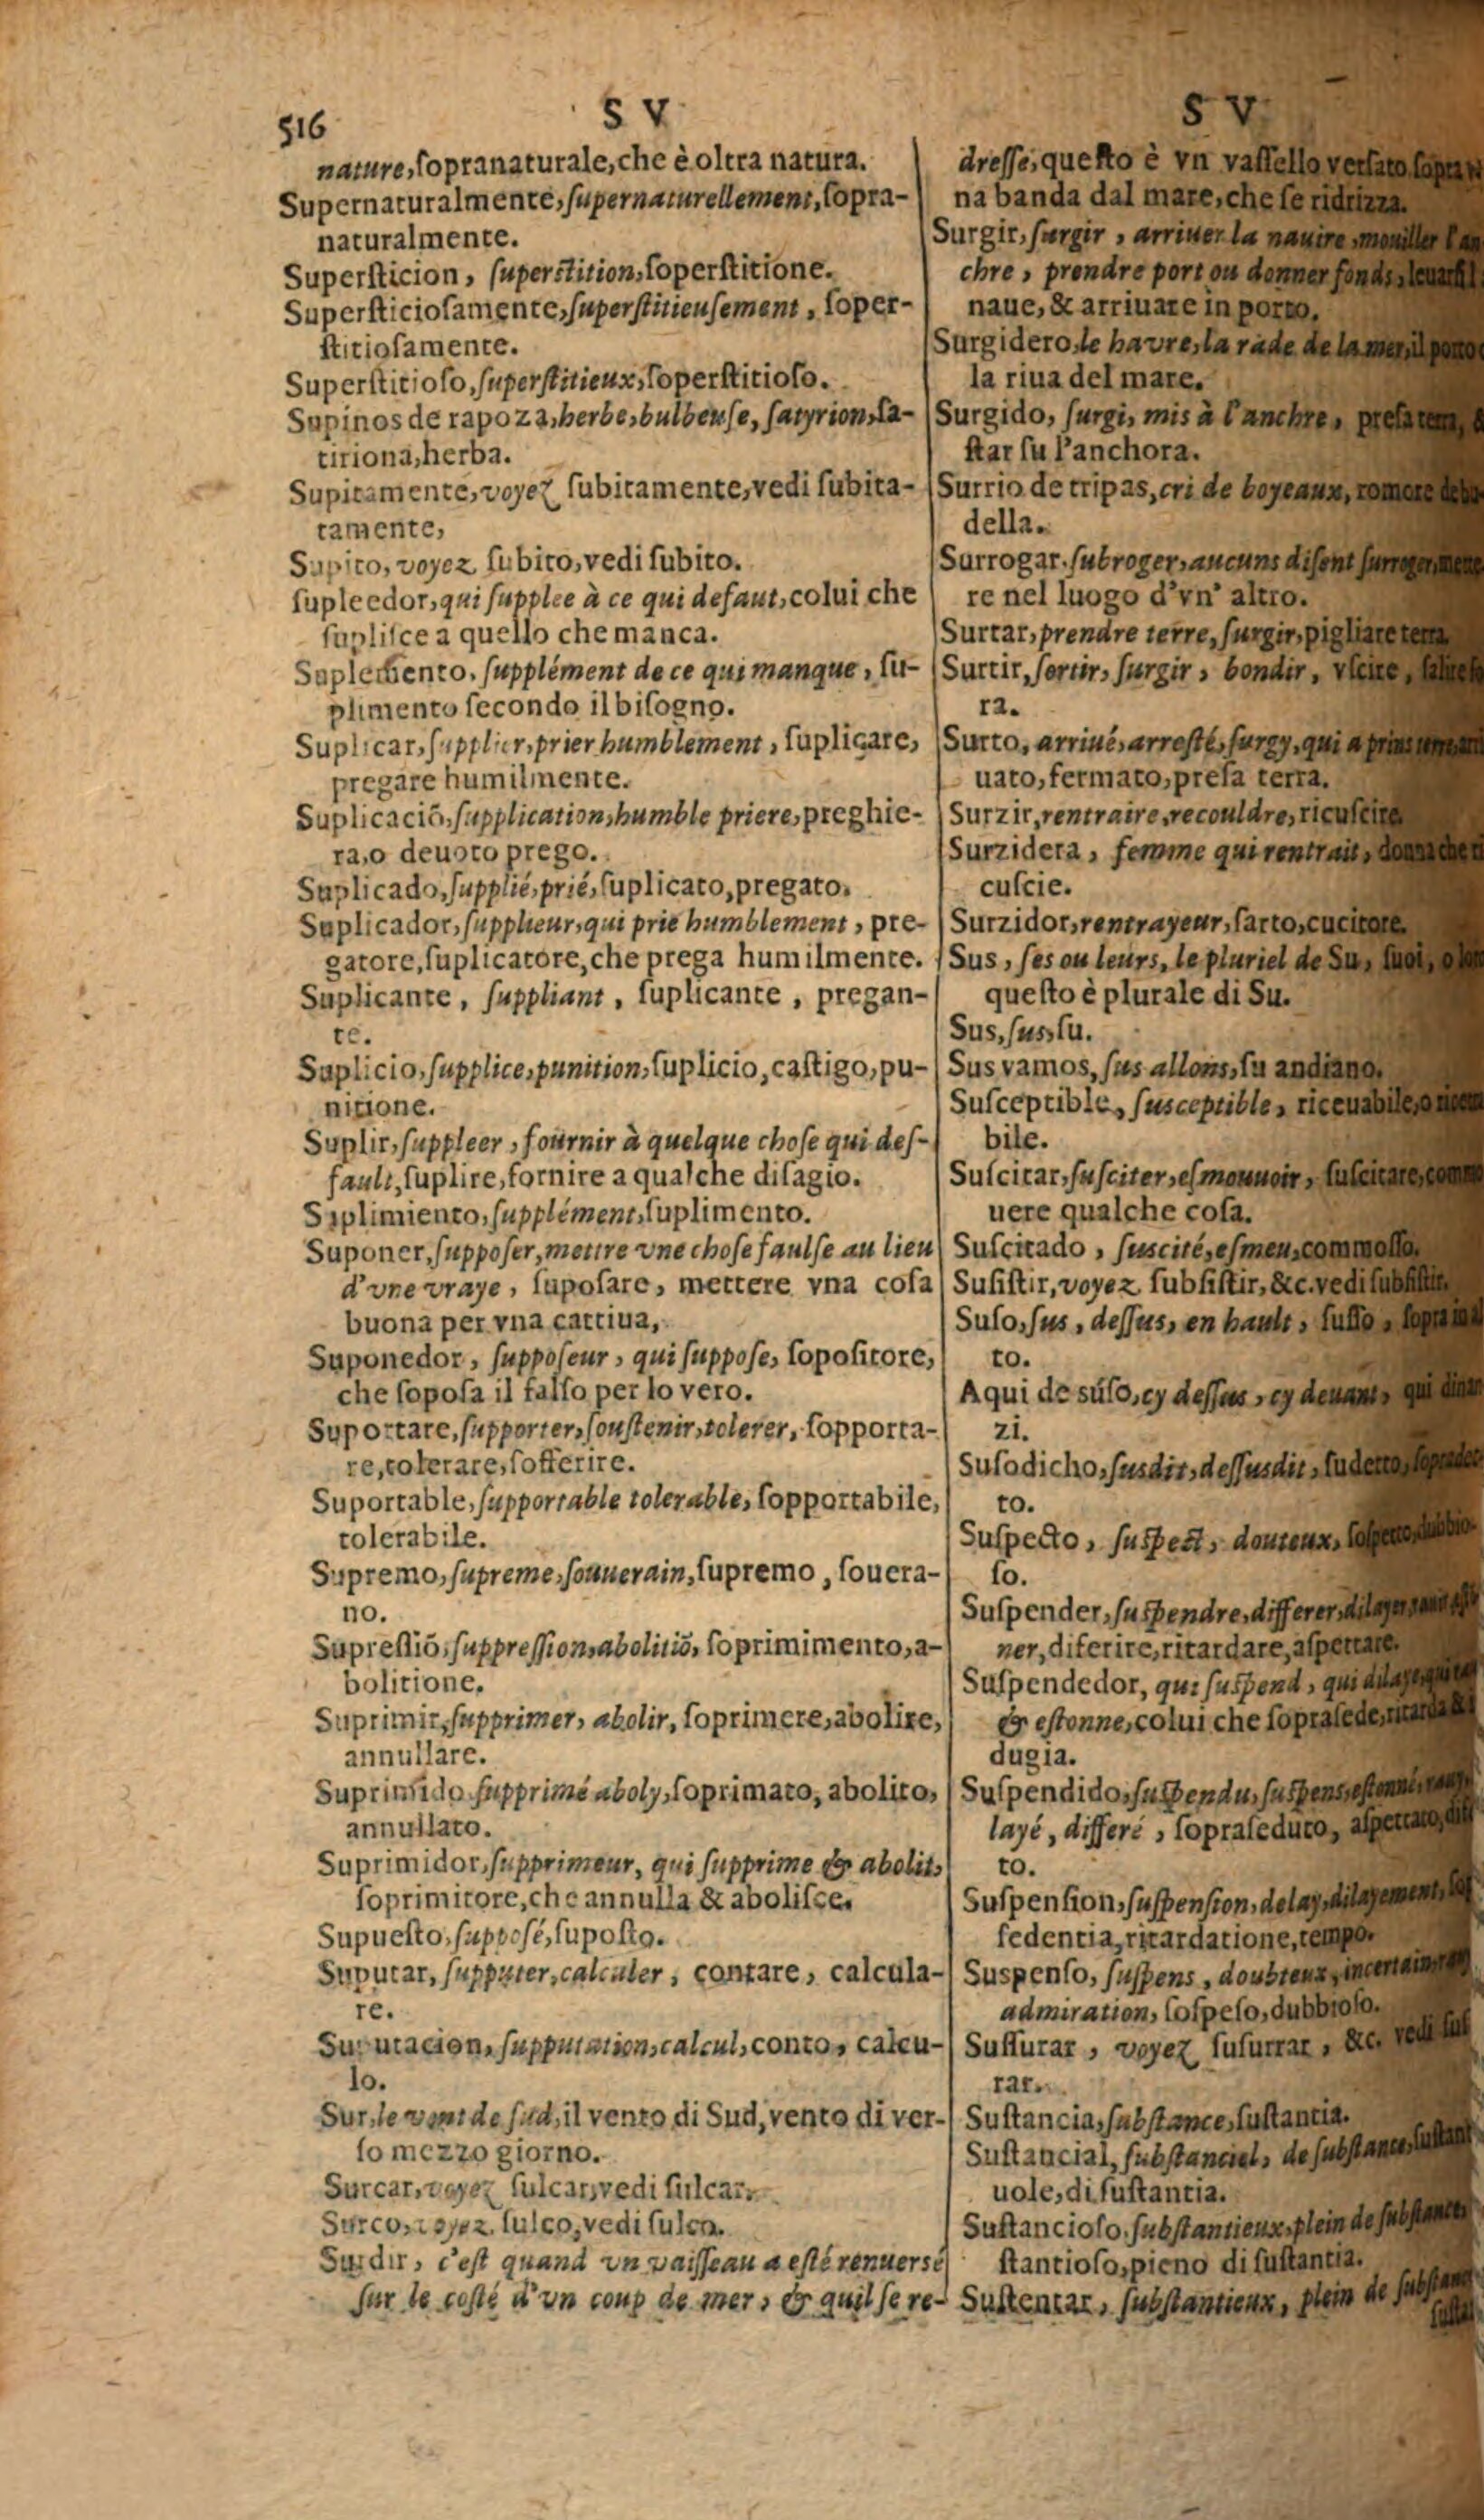 516
S V
nature, ſopranaturale, che è oltra natura.
Supernaturalmente, ſupernaturellement, ſopra-
naturalmente.
Superſticion, ſuperſtition, ſoperſtitione.
Superſticioſamente, ſuperſtitieuſement, ſoper-
ſtitioſamente.
Superſtitioſo, ſuperſtitieux, ſoperſtitioſo.
Supinos de rapoza, herbe, bulbeuſe, ſatyrion, ſa-
tiriona, herba.
Supitamente, voyez ſubitamente, vedi ſubita-
tamente,
Supito, voyez ſubito, vedi ſubito.
ſupleedor, qui ſupplee à ce qui defaut, colui che
ſupliſce a quello che manca.
Suplemento, ſupplément de ce qui manque, ſu-
plimento ſecondo il biſogno.
Suplicar, ſupplier, prier humblement, ſuplicare,
pregare humilmente.
Suplicaciõ, ſupplication, humble priere, preghie-
ra, o deuoto prego.
Suplicado, ſupplié, prié, ſuplicato, pregato.
Suplicador, ſupplieur, qui prie humblement, pre-
gatore, ſuplicatore, che prega humilmente.
Suplicante, ſuppliant, ſuplicante, pregan-
te.
Suplicio, ſupplice, punition, ſuplicio, caſtigo, pu-
nitione.
Suplir, ſuppleer, fournir à quelque choſe qui deſ-
fault, ſuplire, fornire a qualche diſagio.
Suplimiento, ſupplément, ſuplimento.
Suponer, ſuppoſer, mettre vne choſe faulſe au lieu
d'vne vraye, ſupoſare, mettere vna coſa
buona per vna cattiua,
Suponedor, ſuppoſeur, qui ſuppoſe, ſopoſitore,
che ſopoſa il falſo per lo vero.
Suportare, ſupporter, ſouſtenir, tolerer, ſopporta-
re, tolerare, ſofferire.
Suportable, ſupportable tolerable, ſopportabile,
tolerabile.
Supremo, ſupreme, ſouuerain, ſupremo, ſouera-
no.
Supreſſiõ, ſuppreſſion, abolitiõ, ſoprimimento, a-
bolitione.
Suprimir, ſupprimer, abolir, ſoprimere, abolire,
annullare.
Suprimido ſupprimé aboly, ſoprimato, abolito,
annullato.
Suprimidor, ſupprimeur, qui ſupprime & abolit,
ſoprimitore, che annulla & aboliſce.
Supueſto, ſuppoſé, ſupoſto.
Suputar, ſupputer, calculer, contare, calcula-
re.
Suputacion, ſupputation, calcul, conto, calcu-
lo.
Sur, le vent de ſud, il vento di Sud, vento di ver-
ſo mezzo giorno.
Surcar, voyez ſulcar, vedi ſulcar.
Surco, voyez ſulco, vedi ſulco.
Surdir, c'eſt quand vn vaiſſeau a eſté renuersé
ſur le coſté d'vn coup de mer, & quil ſe re-
S V
dreſſe, queſto è vn vaſſello verſato ſopra v
na banda dal mare, che ſe ridrizza.
Surgir, ſurgir, arriuer la nauire, mouiller l'an
chre, prendre port ou donner fonds, leuarſi
naue, & arriuare in porto.
Surgidero, le havre, la rade de la mer, il porto
la riua del mare.
Surgido, ſurgi, mis à l'anchre, preſa terra,
ſtar ſu l'anchora.
Surrio de tripas, cri de boyeaux, romore
della.
Surrogar, ſubroger, aucuns diſent ſurroger,
re nel luogo d'vn' altro.
Surtar, prendre terre, ſurgir, pigliare terra.
Surtir, ſortir, ſurgir, bondir, vſcire,
ra.
Surto, arriué, arreſté, ſurgy, qui a prins
uato, fermato, preſa terra.
Surzir, rentraire, recouldre, ricuſcire.
Surzidera, femme qui rentrait, donna che
cuſcie.
Surzidor, rentrayeur, ſarto, cucitore.
Sus, ſes ou leurs, le pluriel de Su, ſuoi, o
queſto è plurale di Su.
Sus, ſus, ſu.
Sus vamos, ſus allons, ſu andiano.
Suſceptible, ſusceptible, riceuabile, o
bile.
Suſcitar, ſuſciter, eſmouuoir, ſuſcitare,
uere qualche coſa.
Suſcitado, ſuscité, eſmeu, commoſſo.
Suſiſtir, voyez ſubſiſtir, &c. vedi ſubſiſtir.
Suſo, ſus, deſſus, en hault, ſuſſo, ſopra
to.
Aqui de súſo, cy deſſus, cy deuant, qui
zi.
Suſodicho, ſusdit, deſſusdit, ſudetto,
to.
Suſpecto, ſuſpect, douteux, ſoſpetto, dubbio-
ſo.
Suſpender, ſuſpendre, differer, dilayer,
ner, diferire, ritardare, aſpettare.
Suſpendedor, qui ſuſpend, qui dilaye,
& eſtonne, colui che ſopraſede, ritarda &
dugia.
Suſpendido, ſuſpendu, ſuſpens, eſtonné,
layé, differé, ſopraſeduto, aſpettato,
to.
Suſpenſion, ſuſpenſion, delay, dilayement,
ſedentia, ritardatione, tempo.
Suspenſo, ſuſpens, doubteux, incertain,
admiration, ſoſpeſo, dubbioſo.
Suſſurar, voyez ſuſurrar, &c. vedi ſuſ
rar.
Suſtancia, ſubſtance, ſuſtantia.
Suſtancial, ſubſtanciel, de ſubſtance,
uole, di ſuſtantia.
Suſtancioſo, ſubſtantieux, plein de ſubſtance,
ſtantioſo, pieno di ſuſtantia.
Suſtentar, ſubſtantieux, plein de